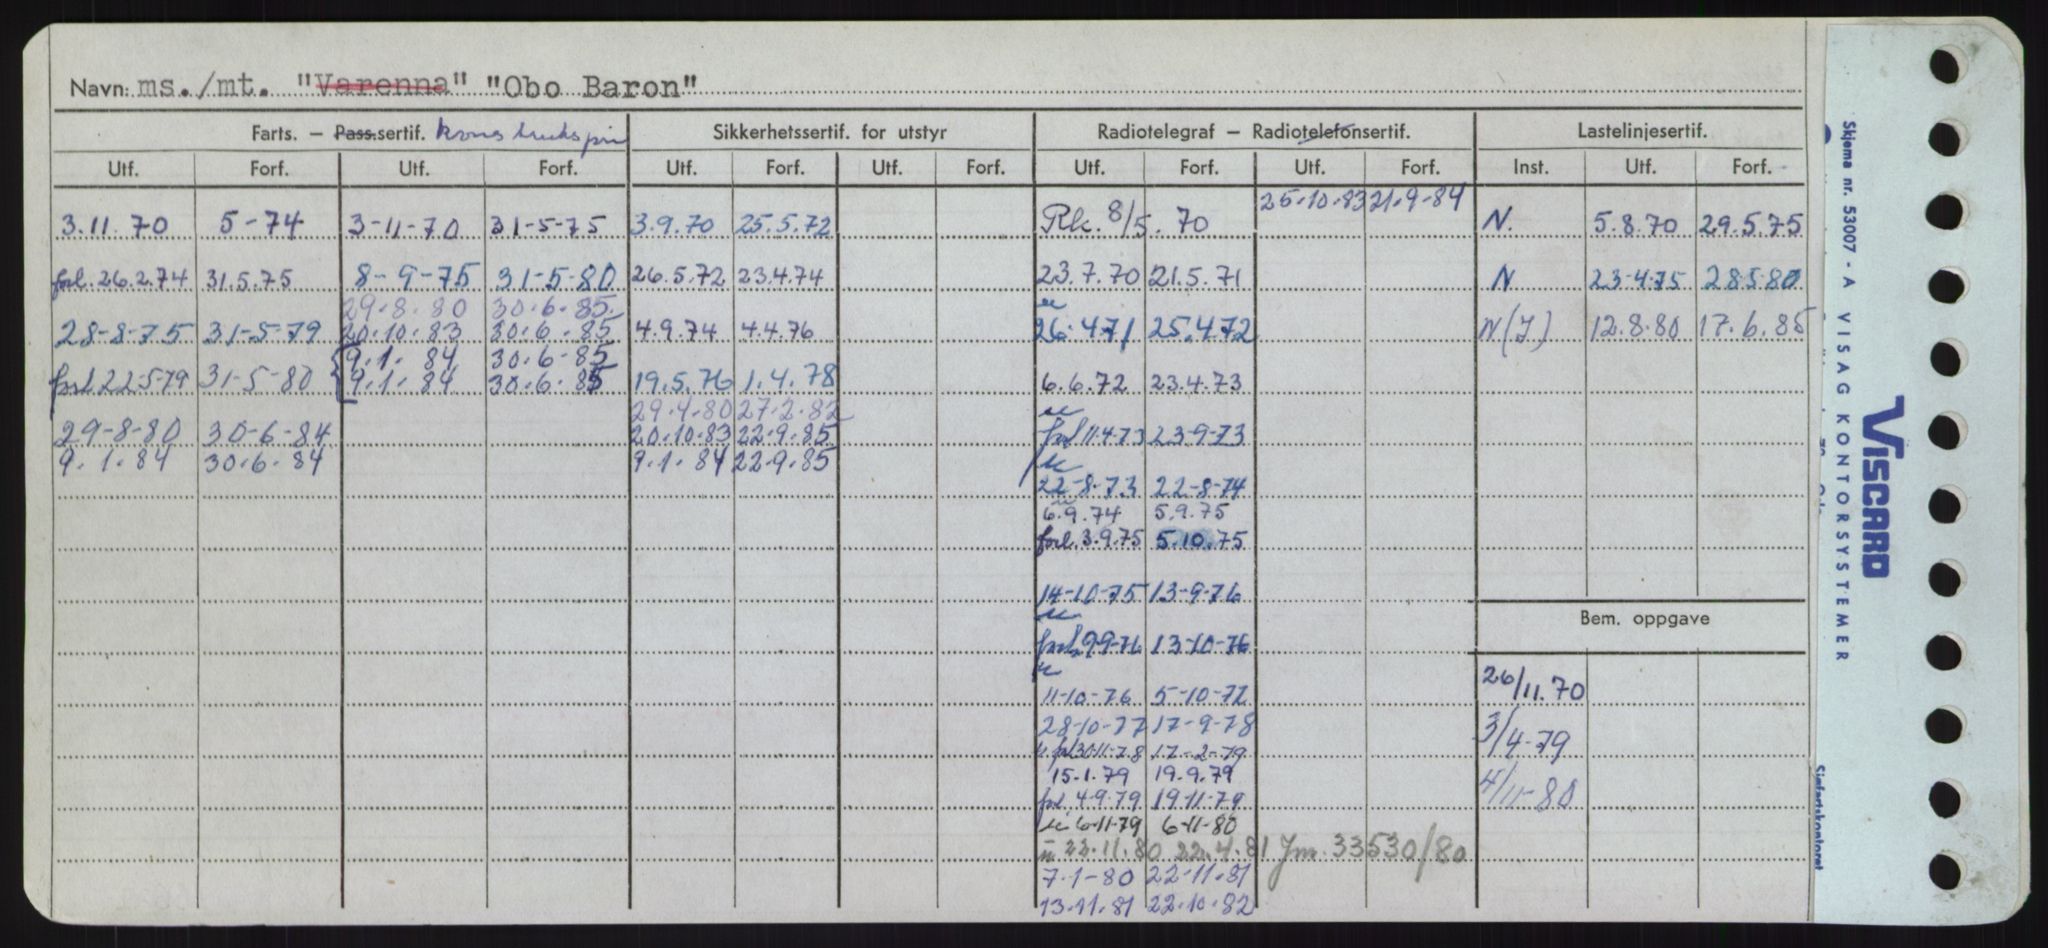 Navn: ms./mt. "Varenna" "Obo Baron"
Farts. — Pass.sertif. Sikkerhetssertif. for utstyr Radiotelegraf — Radiotelefonsertif. Lastelinjesertif.
Utf. Forf. Utf. Forf. Utf. Forf. Utf. Forf. Utf. Forf. Utf. Forf. Inst. Utf. Forf.
25.10.83 21.9.84
3.11.70 5-74 3-11-70 31-5-75 3.9.70 25.5.72 Rk. 8/5. 70 N. 5.8.70 29.5.75
forl. 26.2.74 31.5.75 8-9-75 31-5-80 26.5.72 23.4.74 23.7.70 21.5.71 N 23-4-75 28-5-80
29.8.80 30.6.85
28-8-75 31-5-79 20.10.83 30.6.85 4.9.74 4.4.76 26.4.71 25.4.72 N(J) 12.8.80 17.6.85
9.1.84 30.6.85
forl. 22-5-79 31-5-80 9.1.84 30.6.85 19.5.76 1.4.78 6.6.72 23.4.73
29.4.80 27.2.82
29-8-80 30-6-84 20.10.83 22.9.85 forl 11.4.73 23-9-73
9.1.84 30.6.84 9.1.84 22.9.85
22-8-73 22-8-74
6.9.74 5.9.75
forl. 3.9.75 5.10.75
14-10-75 13-9-76
forl. 9-9-76 13-10-76
Bem. oppgave
11-10-76 5-10-77 26/11.70
28-10-77 17-9-78 3/4-79
forl 30-11-78 17-2-79
15.1.79 19.9.79
forl 4.9.79 19.11.79 4/11-80
6-11-79 6-11-80
22.11.80 22.4.81 Jnr. 33530/80
7-1-80 22-11-81
13.11.81 22.10.82
Skjema nr. 53007 - A VISAG KONTORSYSTEMER
VISCARD